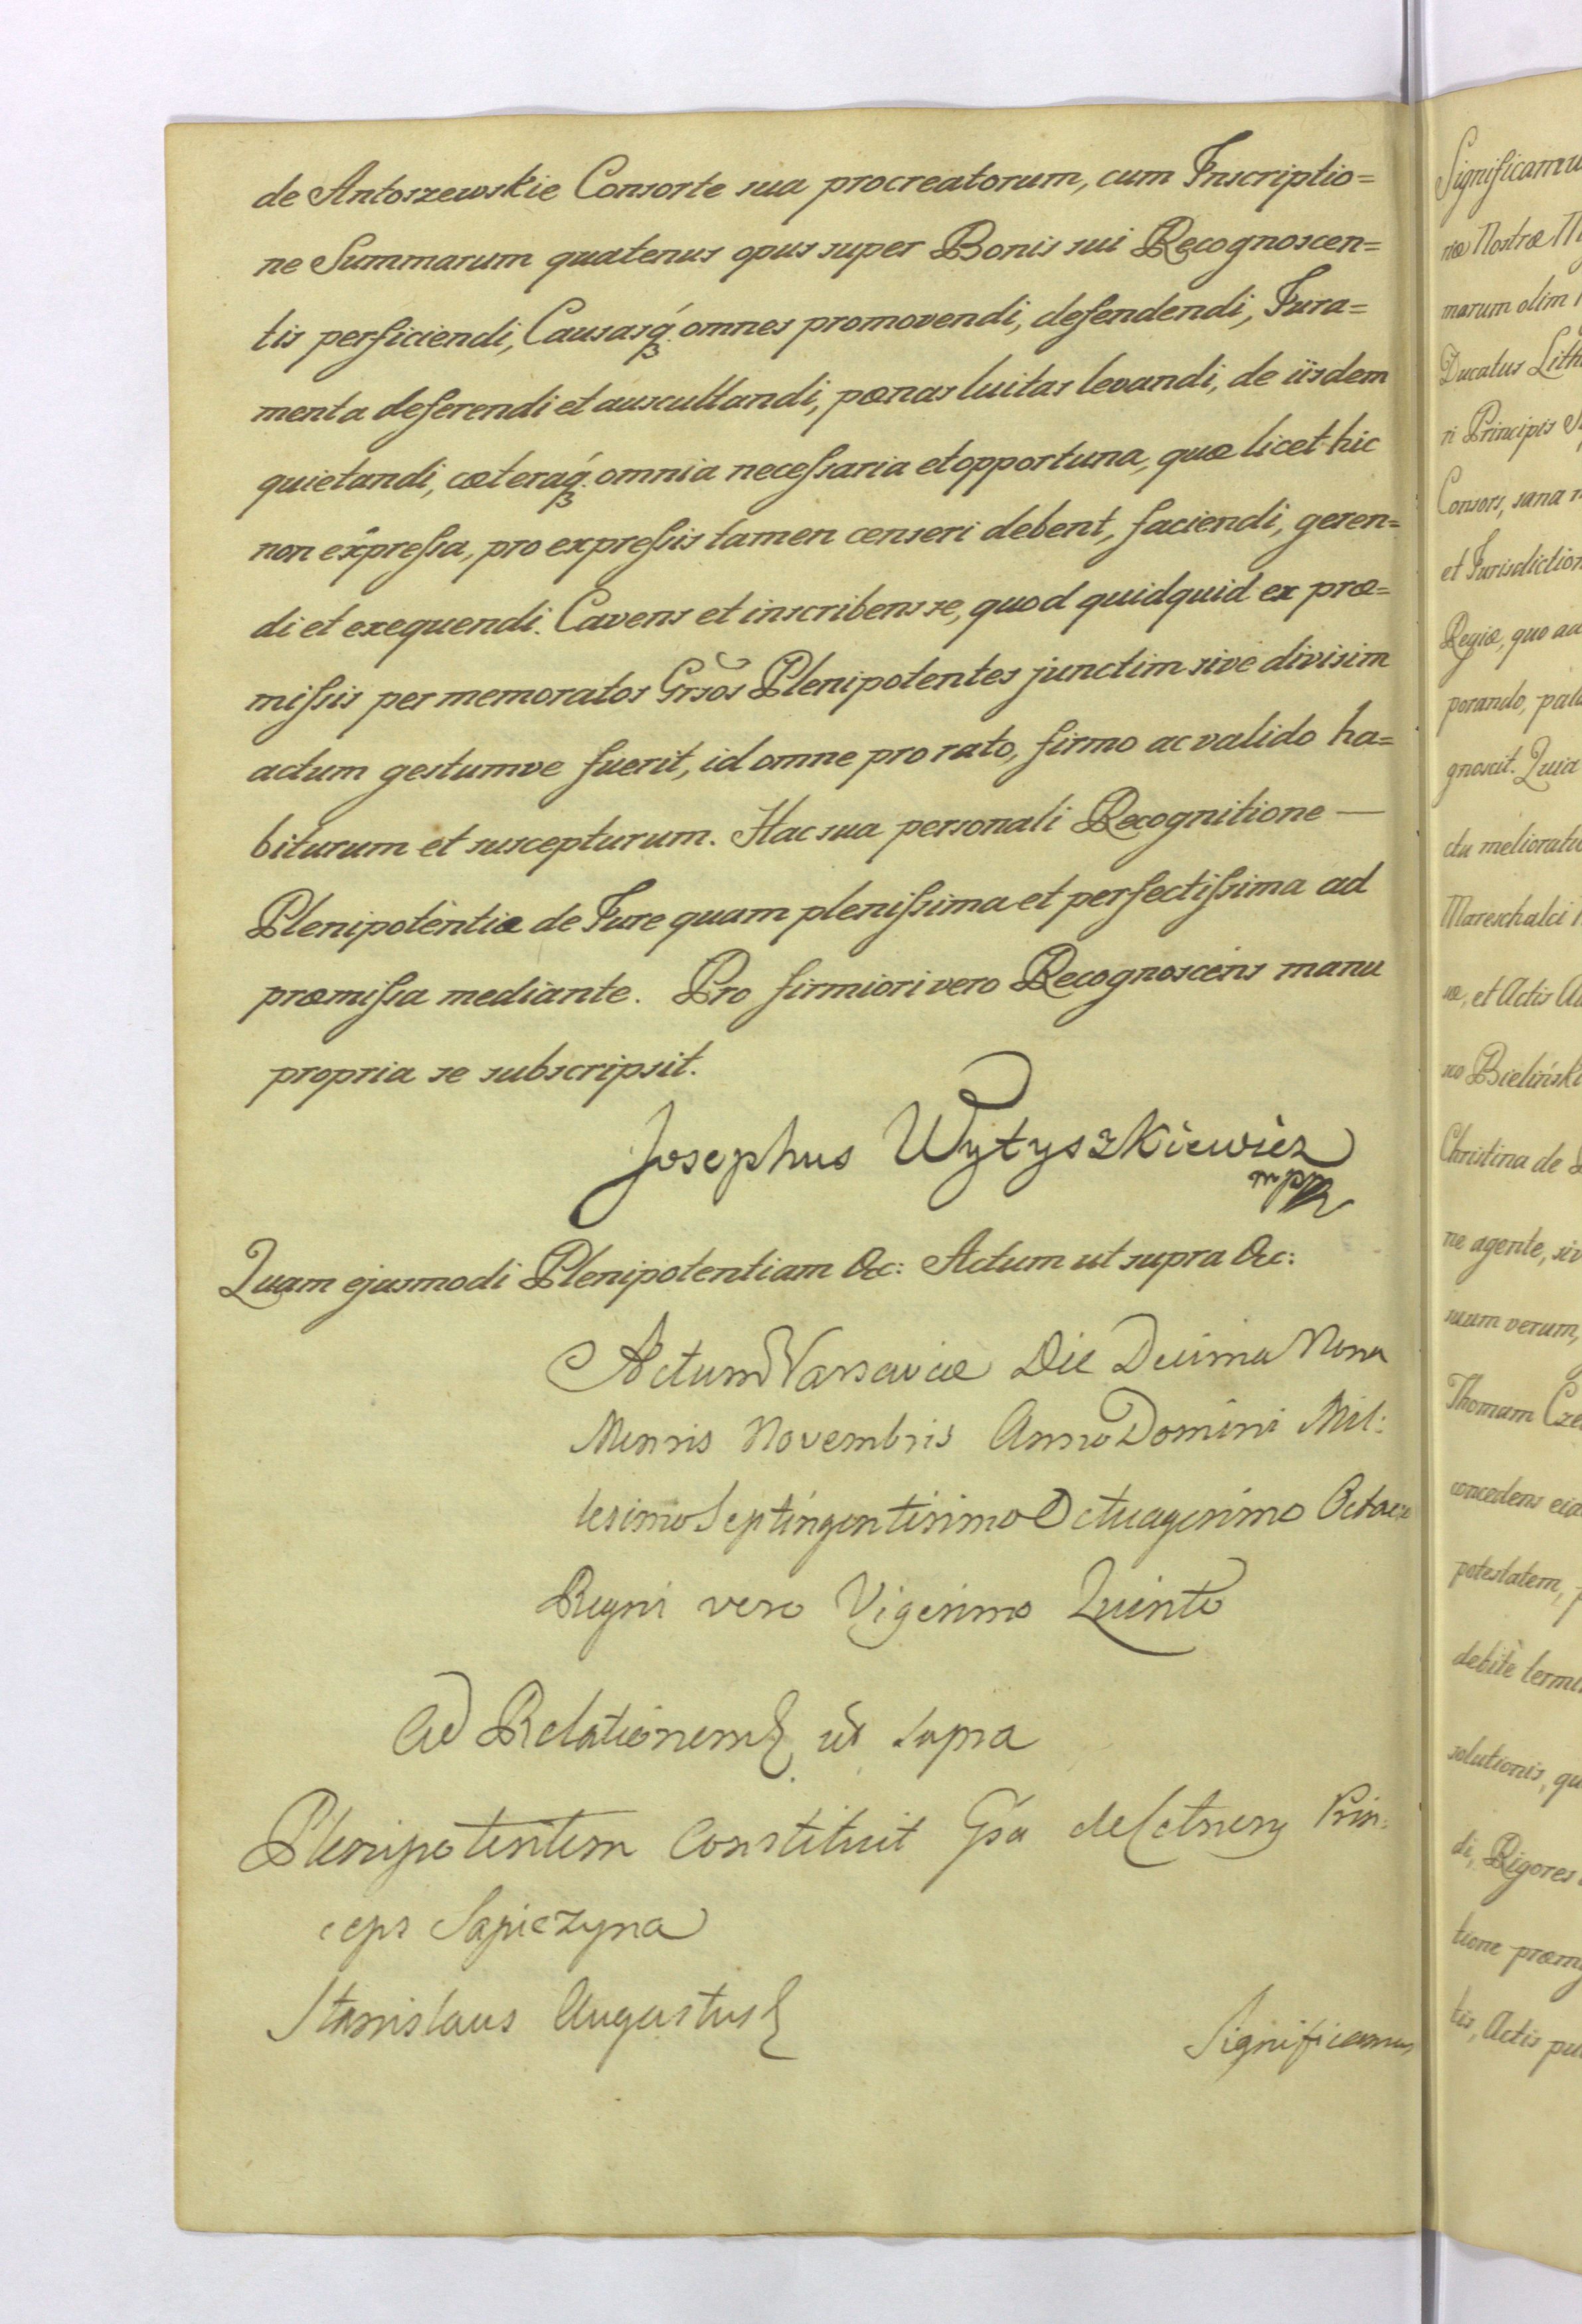 de Antoszewskie Consorte sua procreatorum, cum Inscriptio=
ne Summarum quatenus opus super Bonis sui Recognoscen=
tis perficiendi, Causasq́ꝫ omnes promovendi, defendendi, Jura=
menta deferendi et auscultandi, pœnas luitas levandi, de iisdem
quietandi, cæteraq́ꝫ omnia neceſsaria et opportuna, quæ licet hic
non expreſsa, pro expreſsis tamen censeri debent, faciendi, geren=
di et exequendi. Cavens et inscribens se, quod quidquid ex præ=
miſsis per memoratos Grsos Plenipotentes junctim sive divisim
actum gestumve fuerit, id omne pro rato, firmo ac valido ha=
biturum et suscepturum. Hac sua personali Recognitione —
Plenipotentiæ de Jure quam pleniſsima et perfectiſsima ad
præmiſsa mediante. Pro firmiori vero Recognoscens manu
propria se subscripsit.
Josephus Wytyszkiewicz
mpp
Quam ejusmodi Plenipotentiam &c: Actum ut supra &c:
Actum Varsaviæ Die Decima Nona
Mensis Novembris Anno Domini Mil:
lesimo Septingentisimo Octuagesimo Octavo
Regni vero Vigesimo Quinto
Ad Relationem ut supra
Plenipotentem Constituit Gsa de Cetnery Prin:
ceps Sapiezyna
Stanislaus Augustus
Significamus
Significamu
riæ Nostræ
marum olim
Ducatus Lith
ri Principis
Consors, sana
et Jurisdiction
Regiæ, quo ad
porando, pala
gnoscit. Quia
ctu melioratio
Mareschalci
et Actis
Bieliński
Christina de
ne agente, siv
suum verum,
Thomam Cze
concedens eid
potestatem,
debitè termi
solutionis, qu
di, Rigores
tione præmi
tis, Actis pu